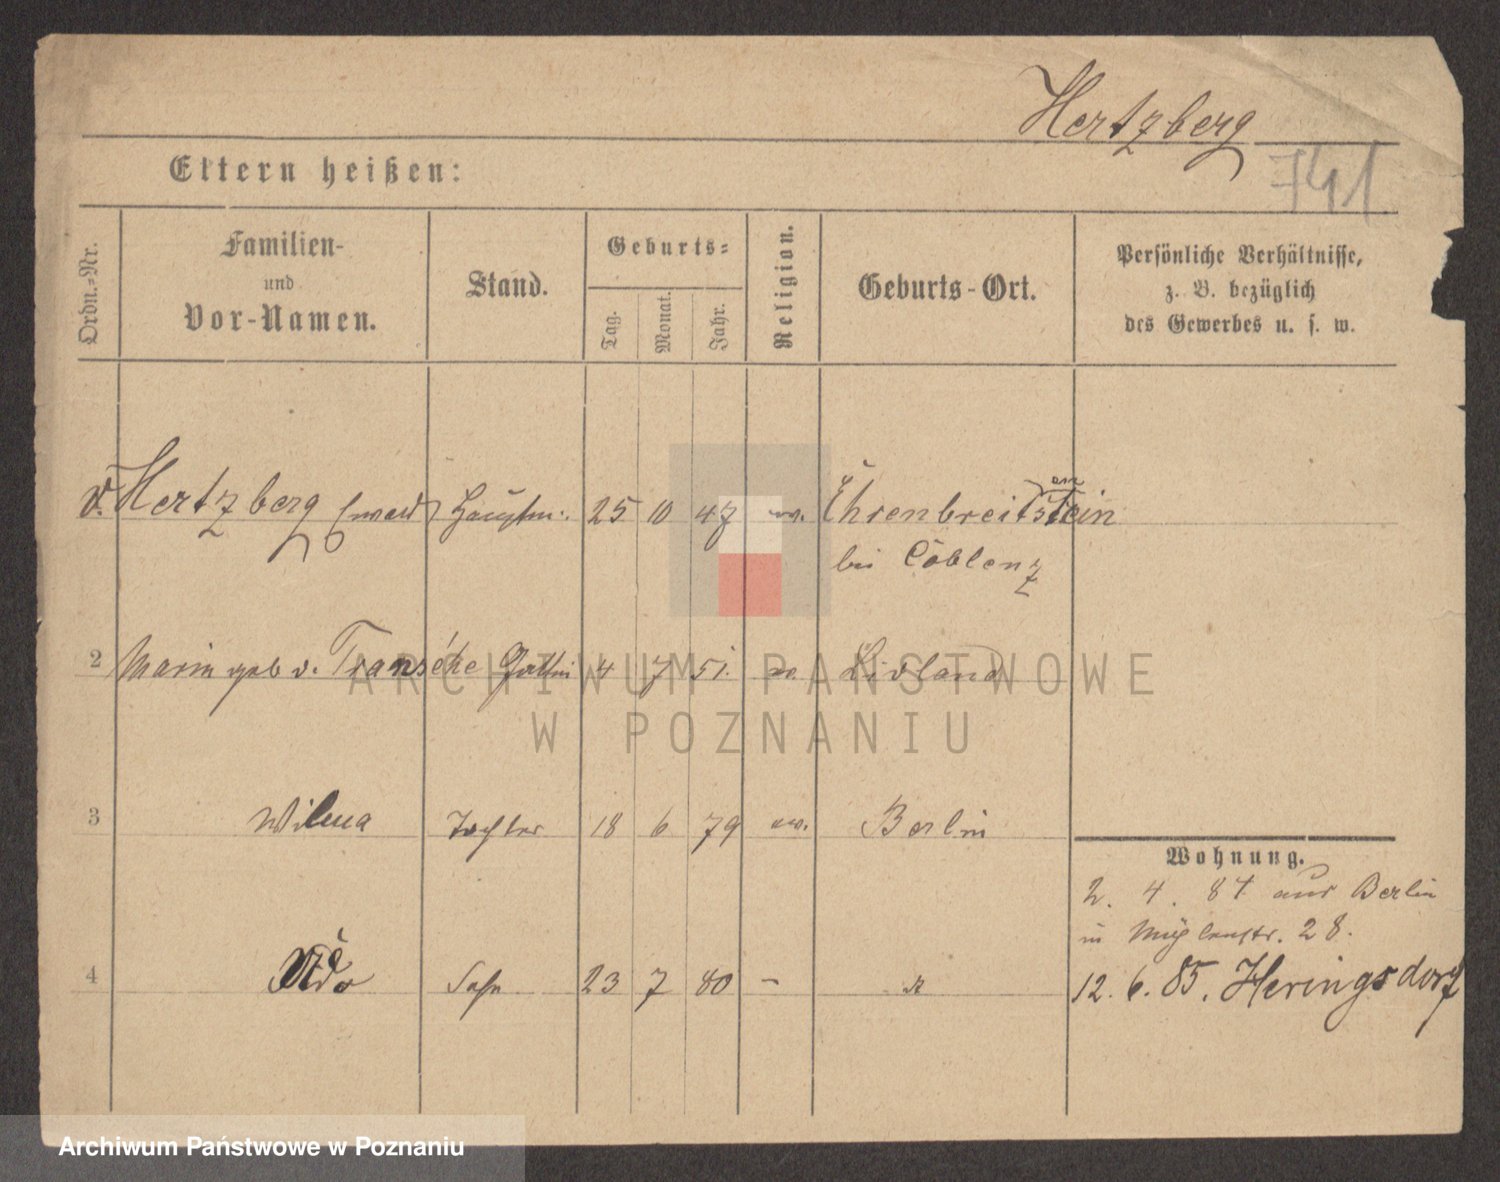 Hertzberg
741
Eltern heißen:
Ordn.-Nr.
Familien-
und
Vor-Namen.
Stand.
Geburts-
Tag.
Monat.
Jahr.
Religion.
Geburts-Ort.
Persönliche Verhältnisse,
z. B. bezüglich
des Gewerbes u. s. w.
v. Hertzberg Hauptm. 25 10 47 ev. Ehrenbreitstein
bei Coblenz
2 Marie geb v. Transéhe Gattin 4 7 51. ev. Livland
ARCHIWUM PAŃSTWOWE
W POZNANIU
3 Wilma Tochter 18 6 79 ev. Berlin
Wohnung.
2. 4. 84 aus Berlin
in Mühlenstr. 28.
4 Udo Sohn 23 7 80 –
12. 6. 85. Heringsdorf
Archiwum Państwowe w Poznaniu